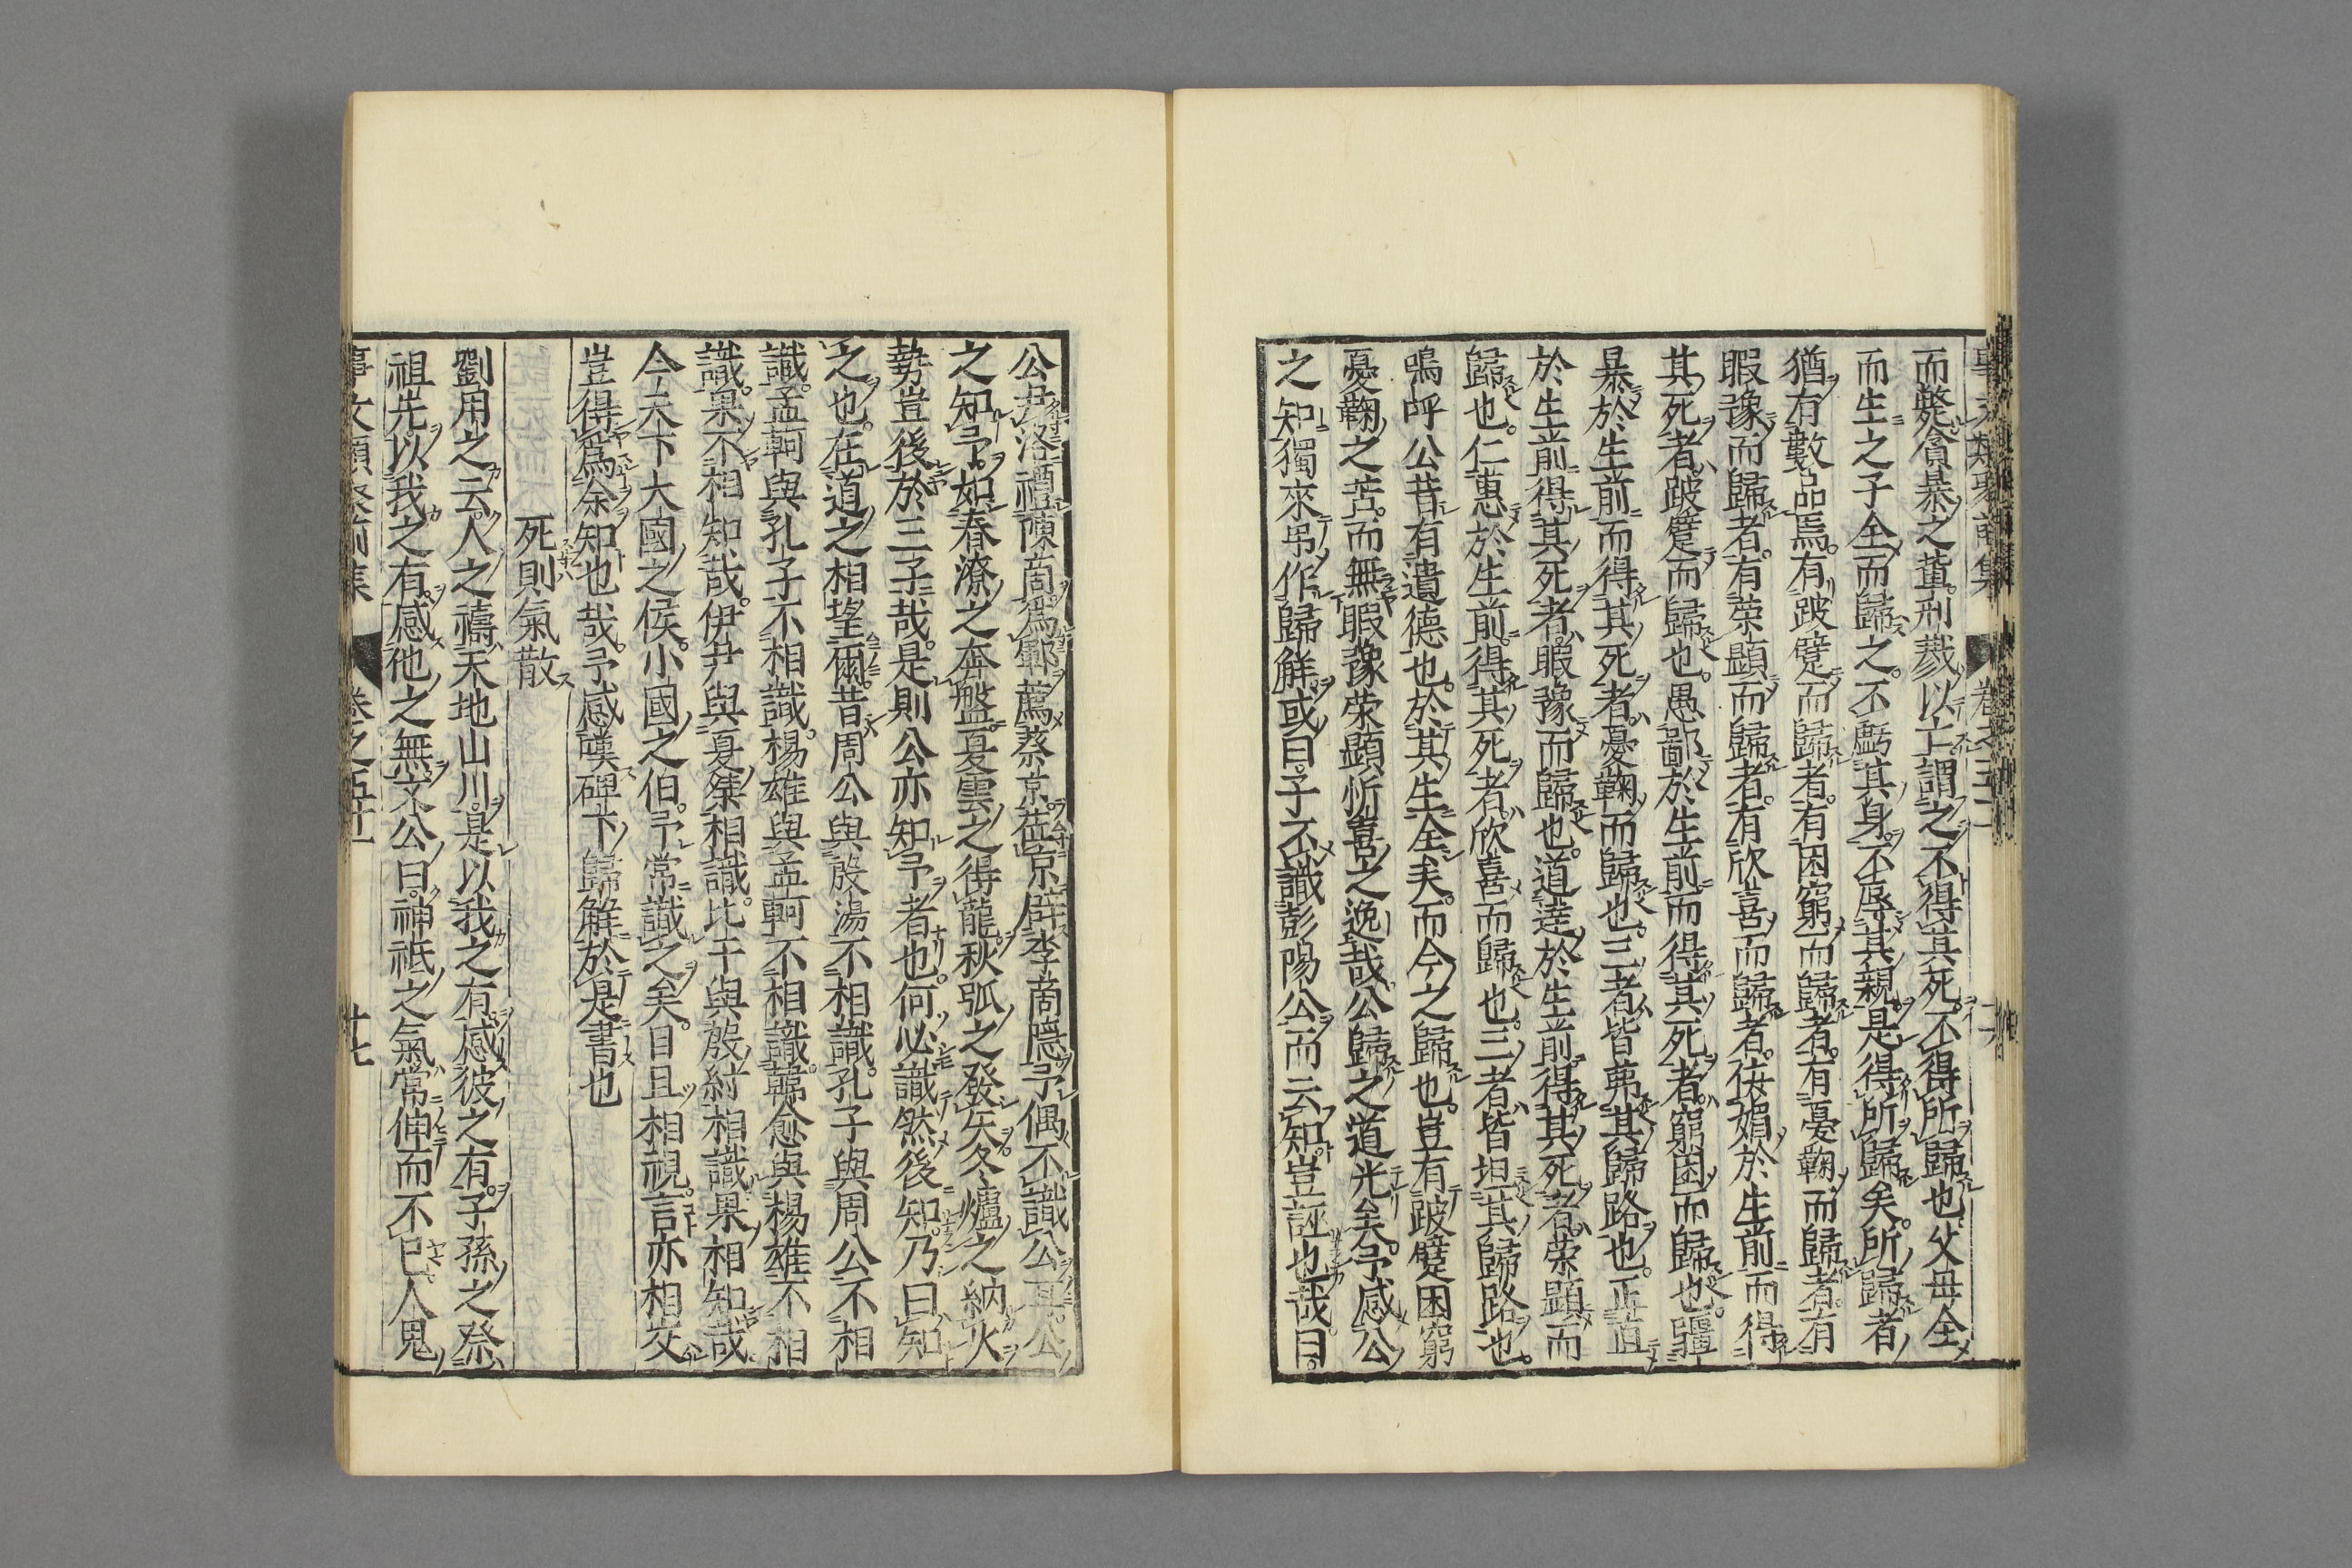 而斃貪暴之輩刑戮以上謂之不得其死不得所歸也父母全
而生之子全而歸之不虧其身不辱其親是得所歸矣所歸者
猶有數品焉有跛躄而歸者有困窮而歸者有憂鞠而歸者有
暇豫而歸者有荣顯而歸者有欣喜而歸者侫媚於生前而得
其死者跛躄而歸也愚鄙於生前而得其死者窮困而歸也彊
暴於生前而得其死者憂鞠而歸也三者皆茀其歸路也正直
於生前得其死者暇豫而歸也道達於生前得其死者荣顯而
歸也仁惠於生前得其死者欣喜而歸也三者皆坦其歸路也
鳴呼公昔有遺德也於其生全矣而今之歸也豈有跛躄困窮
憂鞠之苦而無暇豫荣顯忻喜之逸哉公歸之道光矣予感公
之知獨來吊作歸解或曰子不識彭陽公而云知豈誣也哉曰
公尹洛禮陳商爲鄆薦蔡京莅京辟李商隱予偶不識公耳公
之知予如春潦之奔盤夏雲之得龍秋弧之發矢冬爐之納火
勢豈後於三子哉是則公亦知予者也何必識然後知乃曰知
之也在道之相望爾昔周公與殷湯不相識孔子與周公不相
識孟軻與孔子不相識楊雄與孟軻不相識韓愈與楊雄不相
識果不相知哉伊尹與夏桀相識比干與殷紂相識果相知哉
今天下大國之侯小國之伯予常識之矣目且相視言亦相交
豈得爲余知也哉予感嘆碑下歸解於是書也
死則氣散
劉用之云人之禱天地山川是以我之有感彼之有子孫之祭
祖先以我之有感他之無文公曰神祇之氣常伸而不已人鬼
事文類聚前集 卷之五十一 廿七